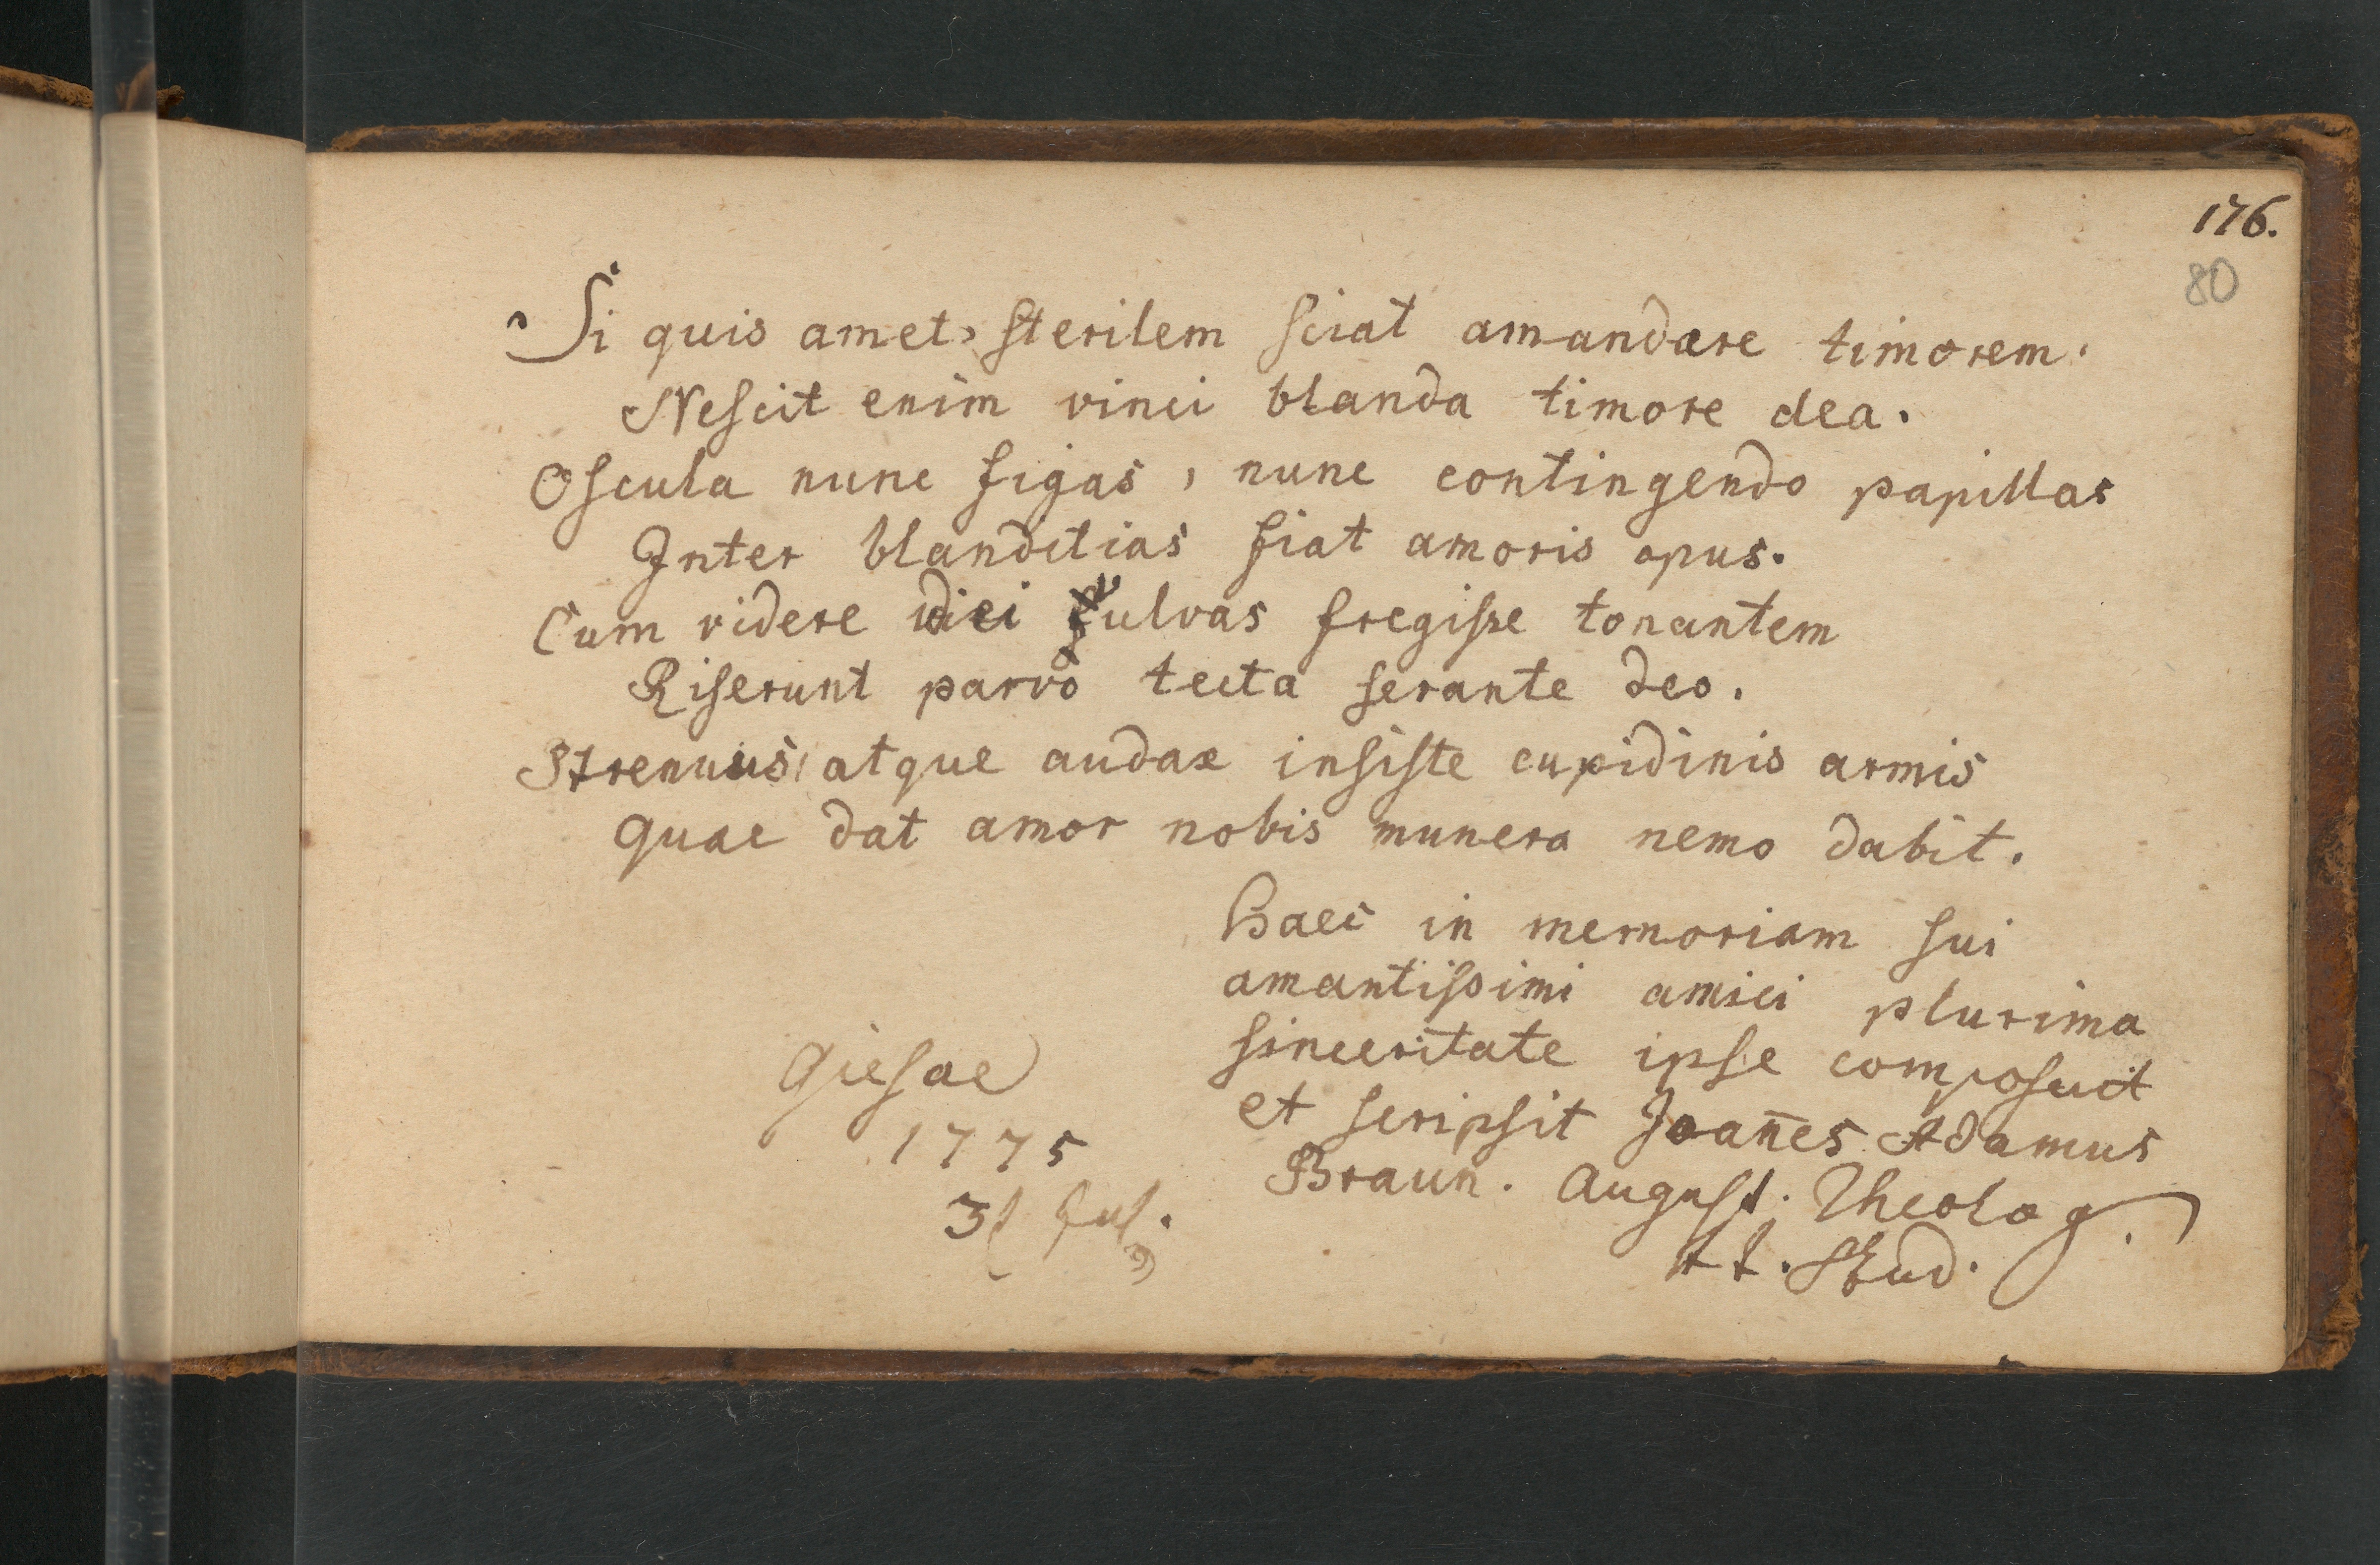 176.
80
Si quis amet, sterilem sciat amandare timorem.
Nescit enim vinci blanda timore dea.
Oscula nunc figas, nunc contingendo papillas
Inter blanditias fiat amoris opus.
Cum videre fulvas fregisse tonantem
Riserunt parvo tecta serante deo.
Strenuus, atque audax insiste cupidinis armis
Quae dat amor nobis munera nemo dabit.
Haec in memoriam sui
amantissimi amici plurima
sinceritate ipse composuit
et scripsit Joan̄es Adamus
Braun. August. Theolog.
Stud.
Giesae
1775
31 Jul.